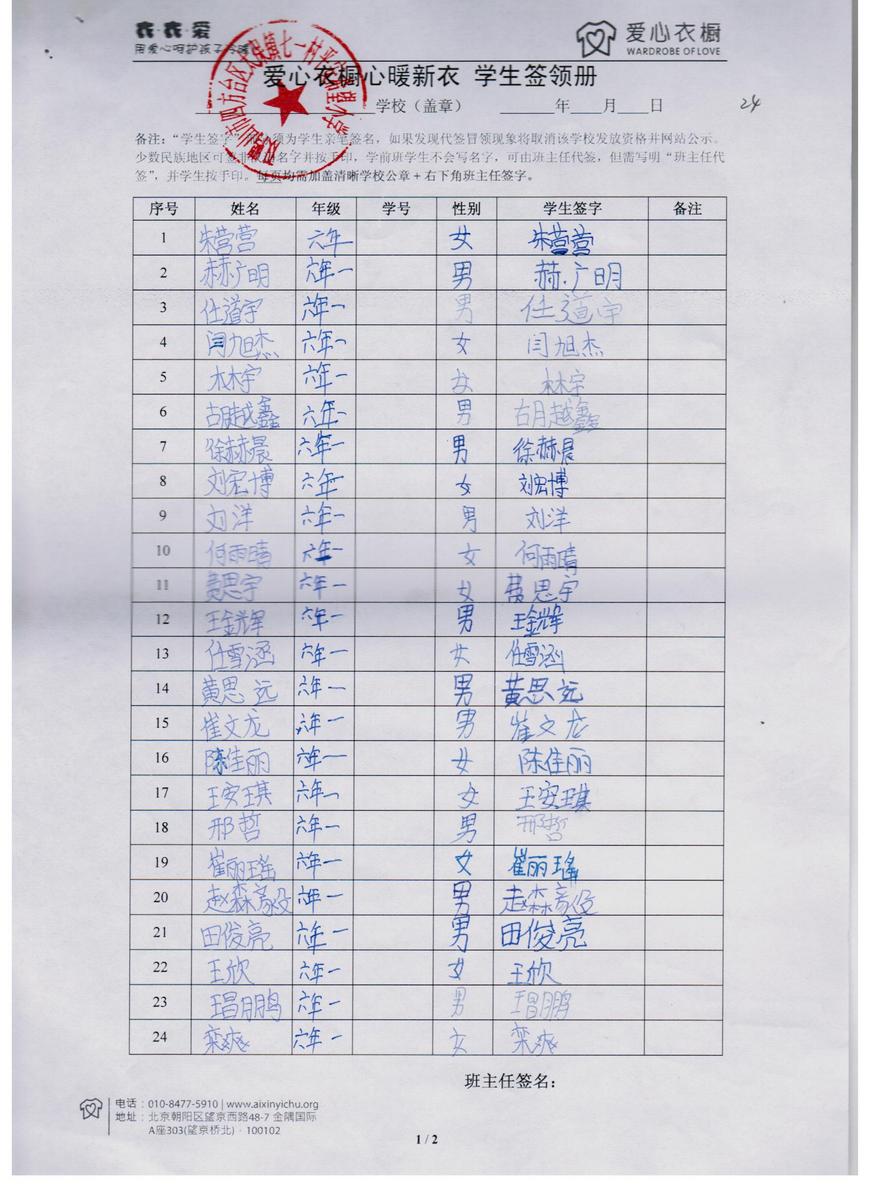 衣·衣·爱
用爱心呵护孩子冷暖
爱心衣橱
WARDROBE OF LOVE
爱心衣橱心暖新衣 学生签领册
学校（盖章） 年 月 日
24
备注：“学生签字”须为学生亲笔签名，如果发现代签冒领现象将取消该学校发放资格并网站公示。
少数民族地区可签非汉语名字并按手印，学前班学生不会写名字，可由班主任代签，但需写明“班主任代
签”，并学生按手印。每页均需加盖清晰学校公章＋右下角班主任签字。
序号 姓名 年级 学号 性别 学生签字 备注
1 朱营营 六年 女 朱营营
2 赫广明 六年一 男 赫.广明
3 仕道宇 六年一 男 仕道宇
4 闫旭杰 六年一 女 闫旭杰
5 林宇 六年一 女 林宇
6 胡越鑫 六年一 男 胡越鑫
7 徐赫晨 六年一 男 徐赫晨
8 刘宏博 六年一 女 刘宏博
9 刘洋 六年一 男 刘洋
10 何雨晴 六年一 女 何雨晴
11 思宇 六年一 女 思宇
12 王金辉 六年一 男 王金辉
13 仕雪涵 六年一 女 仕雪涵
14 黄思远 六年一 男 黄思远
15 崔文龙 六年一 男 崔文龙
16 陈佳丽 六年一 女 陈佳丽
17 王安琪 六年一 女 王安琪
18 邢哲 六年一 男 邢哲
19 崔丽瑶 六年一 女 崔丽瑶
20 赵森 六年一 男 赵森
21 田俊亮 六年一 男 田俊亮
22 王欣 六年一 女 王欣
23 鹏 六年一 男 鹏
24 栾爽 六年一 女 栾爽
班主任签名：
电话：010-8477-5910 | www.aixinyichu.org
地址：北京朝阳区望京西路48-7 金隅国际
A座303(望京桥北)·100102
1 / 2